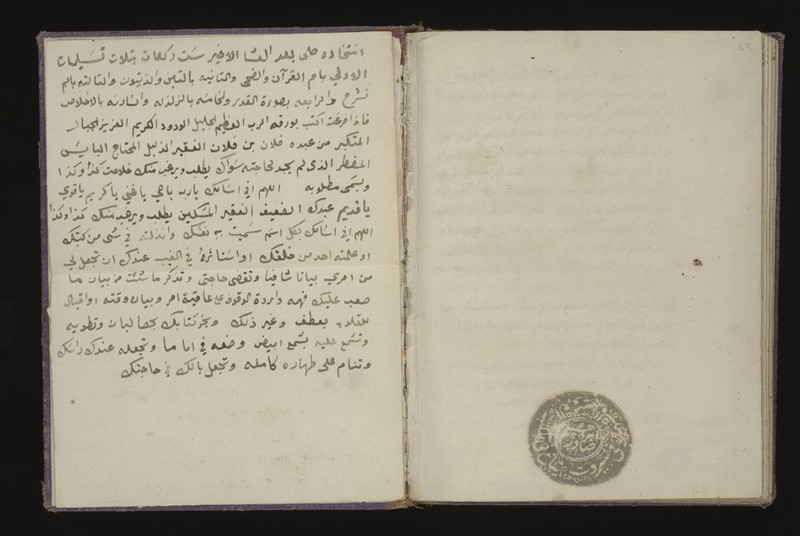 استخاره صلى بعد العشا الاخير ست ركعات بثلاث تسليمات
الاولى بام القرآن والضحى والثانيه بالتين والزيتون والثالثه بالم
نشرح والرابعه بصورة القدر والخامسه بالزلزله والسادسه بالاخلاص
فاذا فرغت اكتب بورقه الرب العظيم الجليل الودود الكريم العزيز الجبار
المتكبر من عبده فلان بن فلان الفقير الذليل المحتاج البايس
المضطر الذى لم يجد لحاجته سواك يطلب ويرغب منك خلاصت كذا وكذا
ويسمى مطلوبه اللهم اني اسالك يارب ياحي ياغني ياكريم ياقوي
ياقديم عبدك الضعيف الفقير المسكين يطلب ويرغب منك كذا وكذا
اللهم اني اسالك بكل اسم سميت به نفسك وانزلته في شى من كتبك
او علمته احد من خلقك او استاثرة في الغيب عندك ان تجعل لي
من امري بيانا شافيا وتقضى حاجتى وتذكر ما شئت من بيان ما
صعب عليك فهمه واردة الوقوف على عاقبة امر وبيان وقته او اقبال
بعطف وغير ذلك وبخر كتابك بحصا لبان وتطويه
وتشمع عليه بشمع ابيض وضعه في انا ما وتجعله عندك راسك
وتنام على طهاره كامله وتجعل بالك في حاجتك